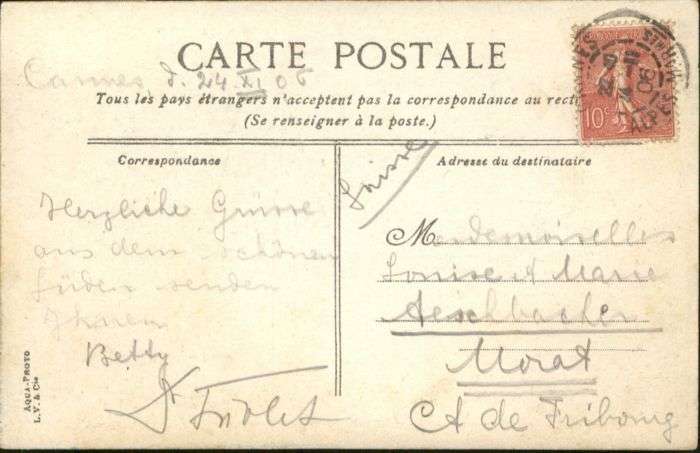 CARTE POSTALE
Cannes d. 24. XI 06
Tous les pays étrangers n'acceptent pas la correspondance au recto
(Se renseigner à la poste.)
10c
Correspondance
Adresse du destinataire
Suisse
Herzliche Grüsse
aus dem schönen
Süden senden
Betty
Mesdemoiselles
Louise & Marie
Aeschbacher
Morat
Ct de Fribourg
AQUA-PHOTO
L. V. & Cie